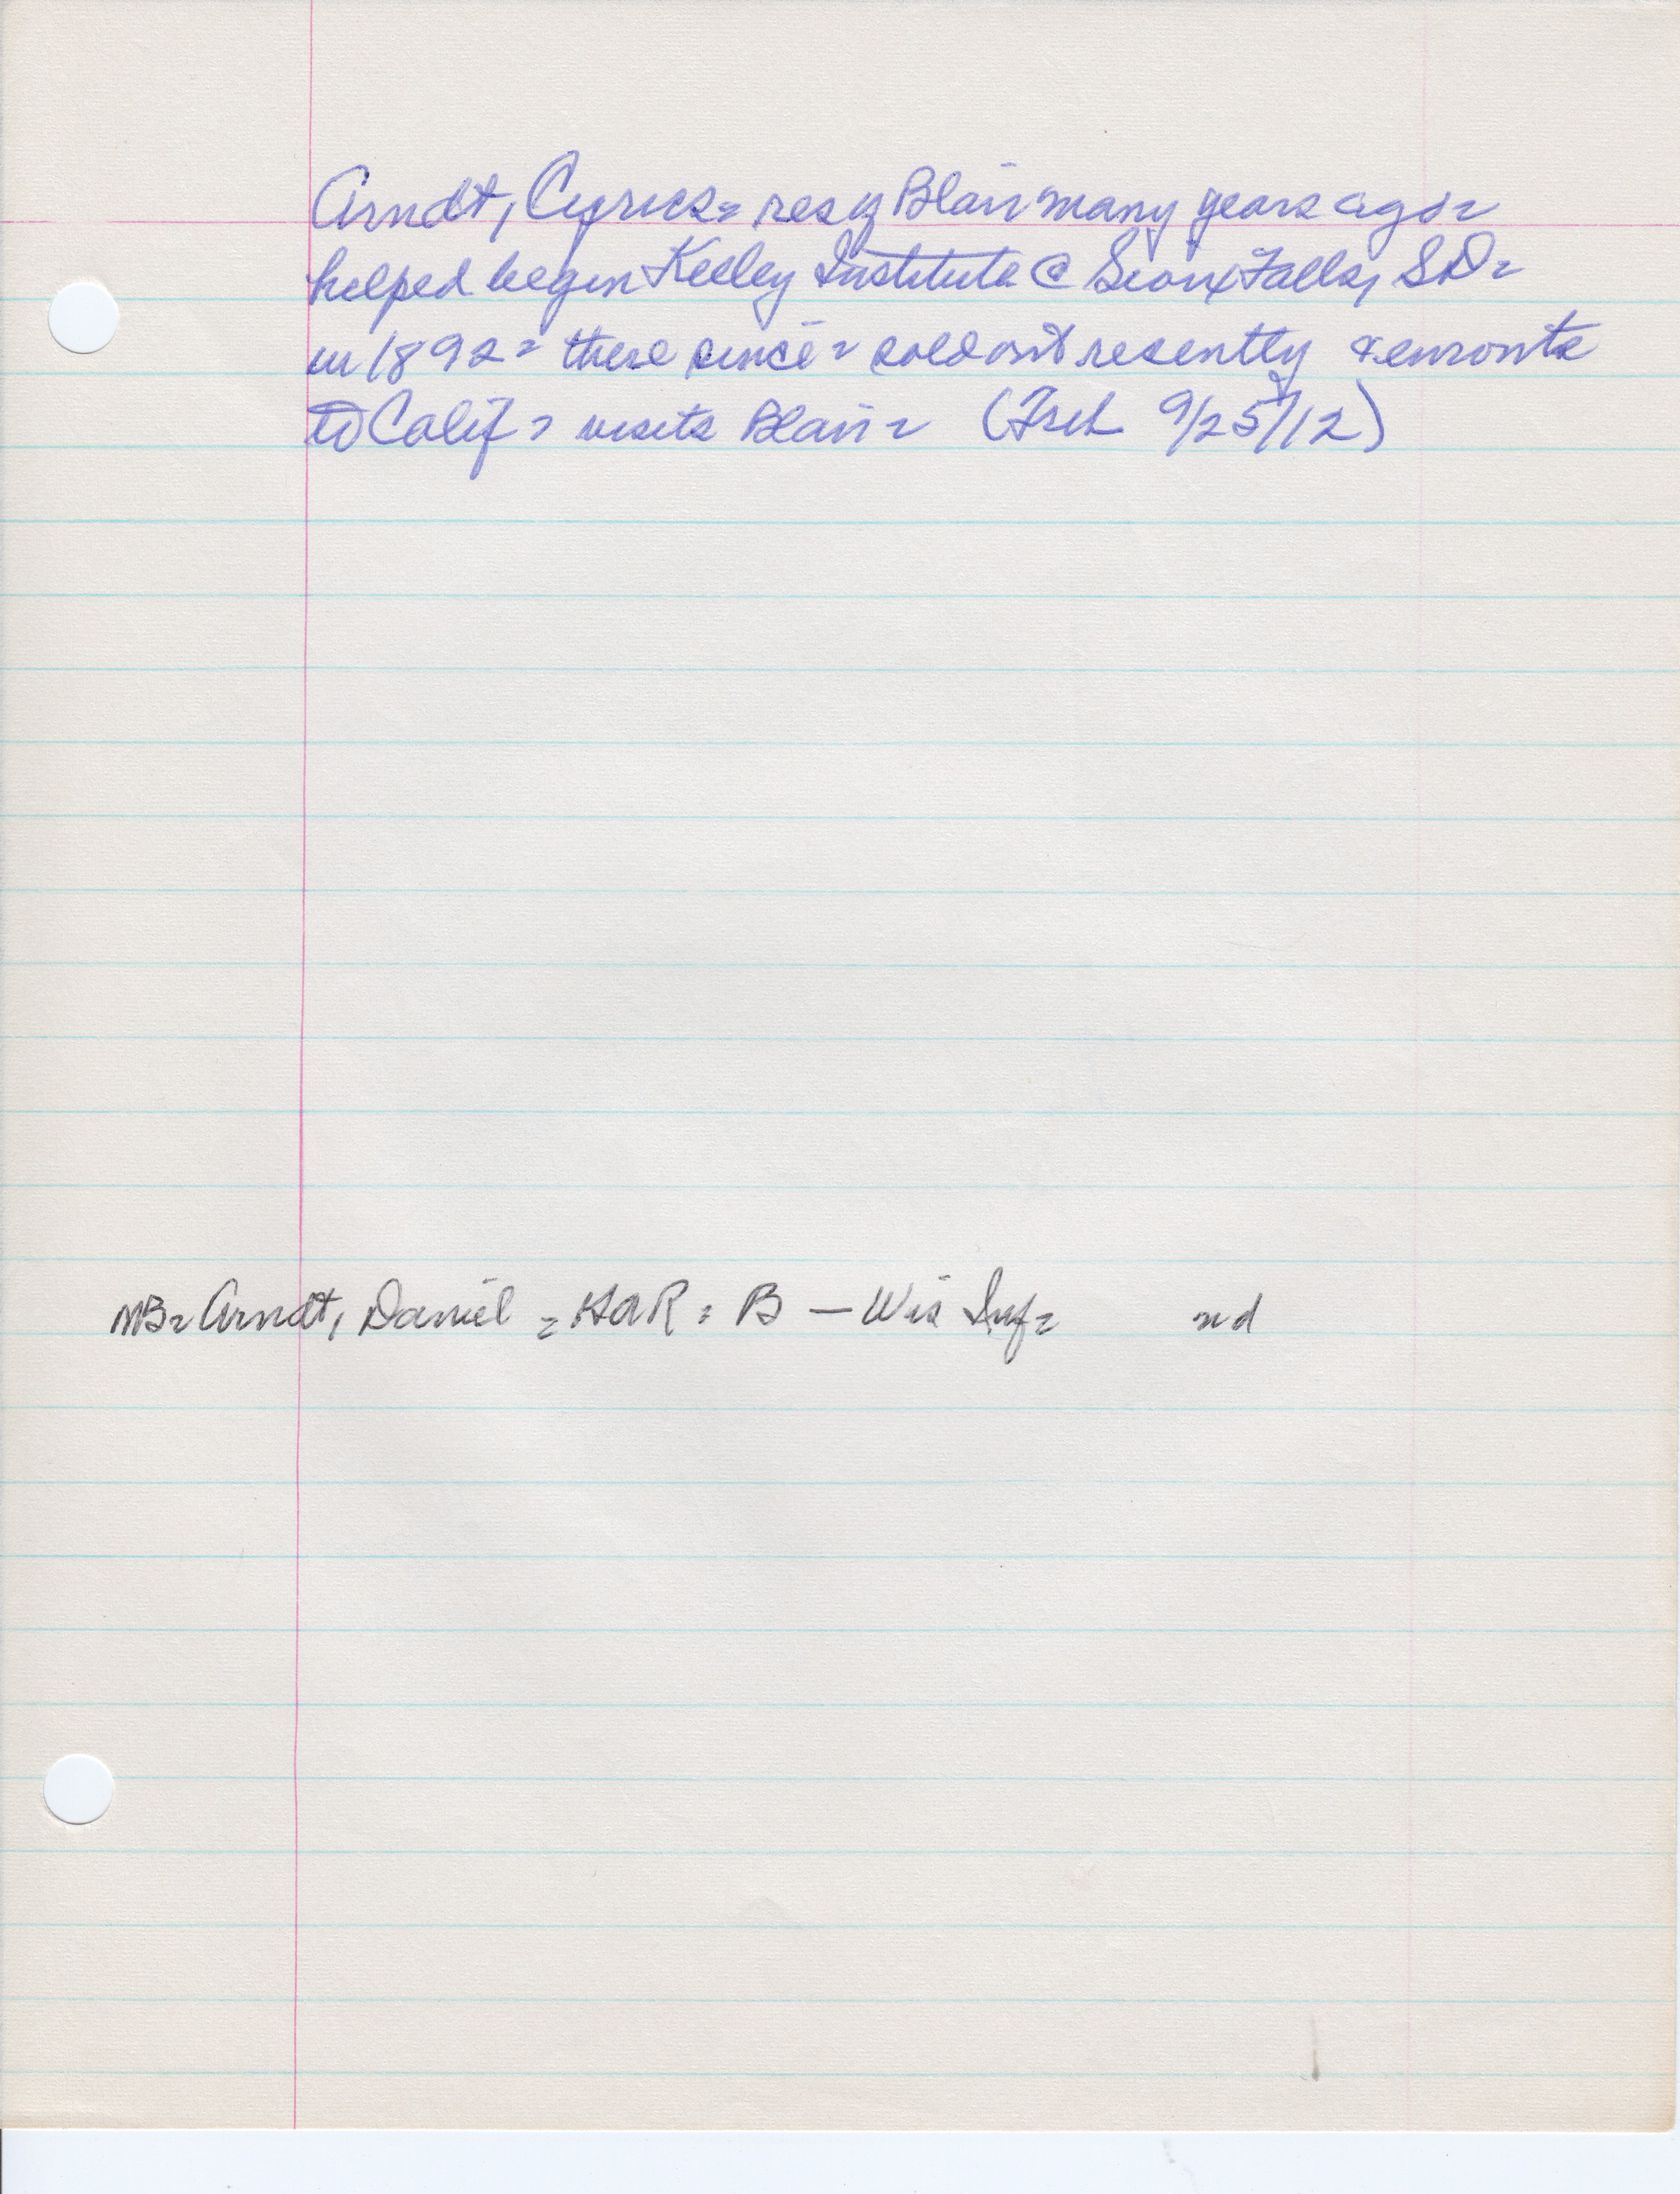 Arndt, Cyrus = res of Blair many years ago =
helped begin Keeley Institute @ Sioux Falls, SD =
in 1892 = there since = sold out resently & enroute
to Calif = visits Blair = ( 9/25/12)
MB = Arndt, Daniel = GAR = B — Wis Inf = nd